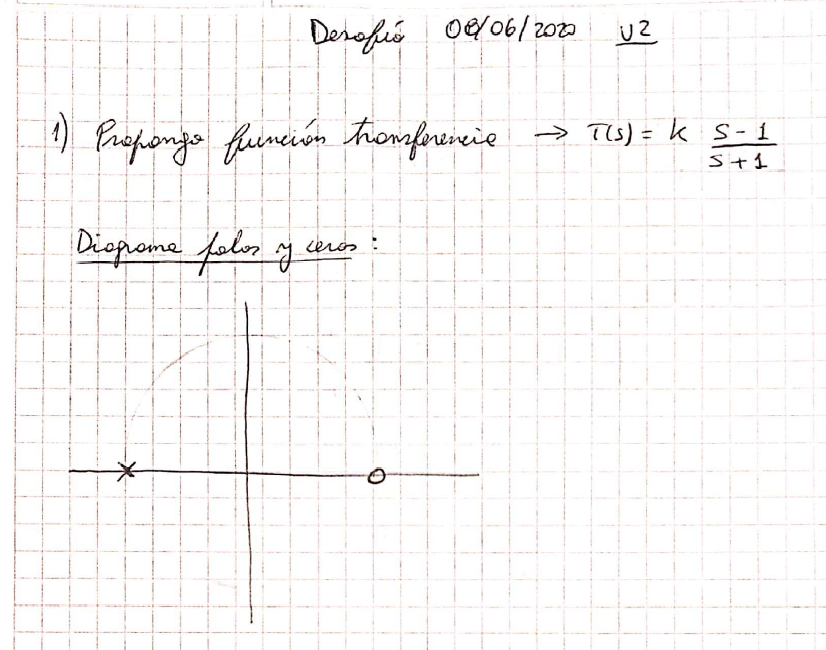 Desafío 08/06/2020 V2
1) Propongo función transferencia → T(s) = k (s - 1)/(s + 1)
Diagrama polos y ceros :